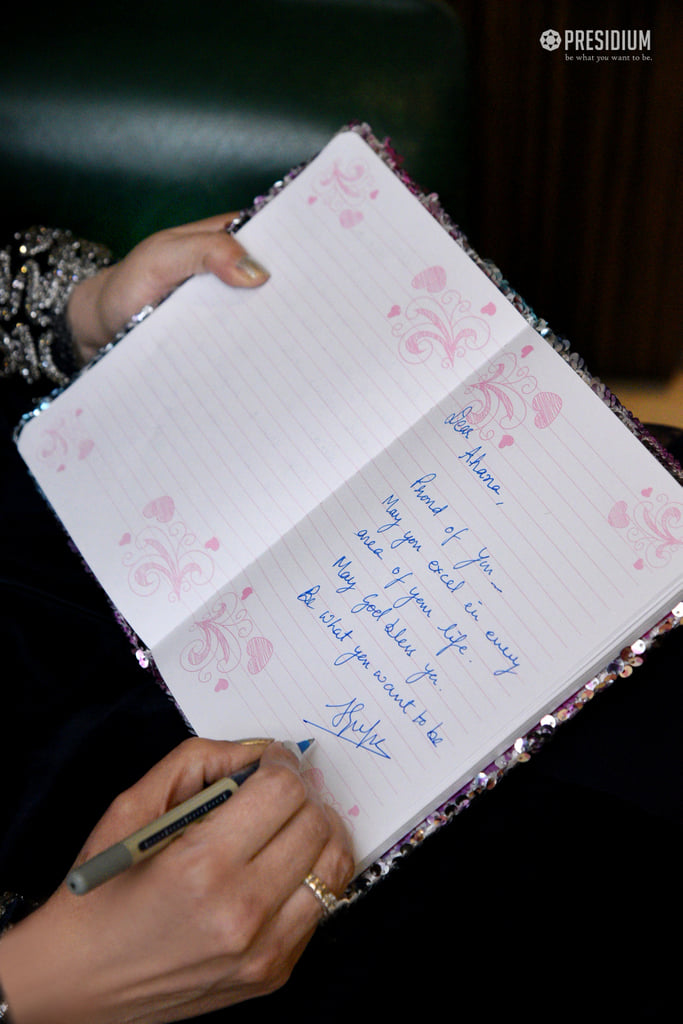 PRESIDIUM
be what you want to be.
Dear
Ahana,
Proud of you
May you excel in every
area of your life.
May God bless you.
Be what you want to be